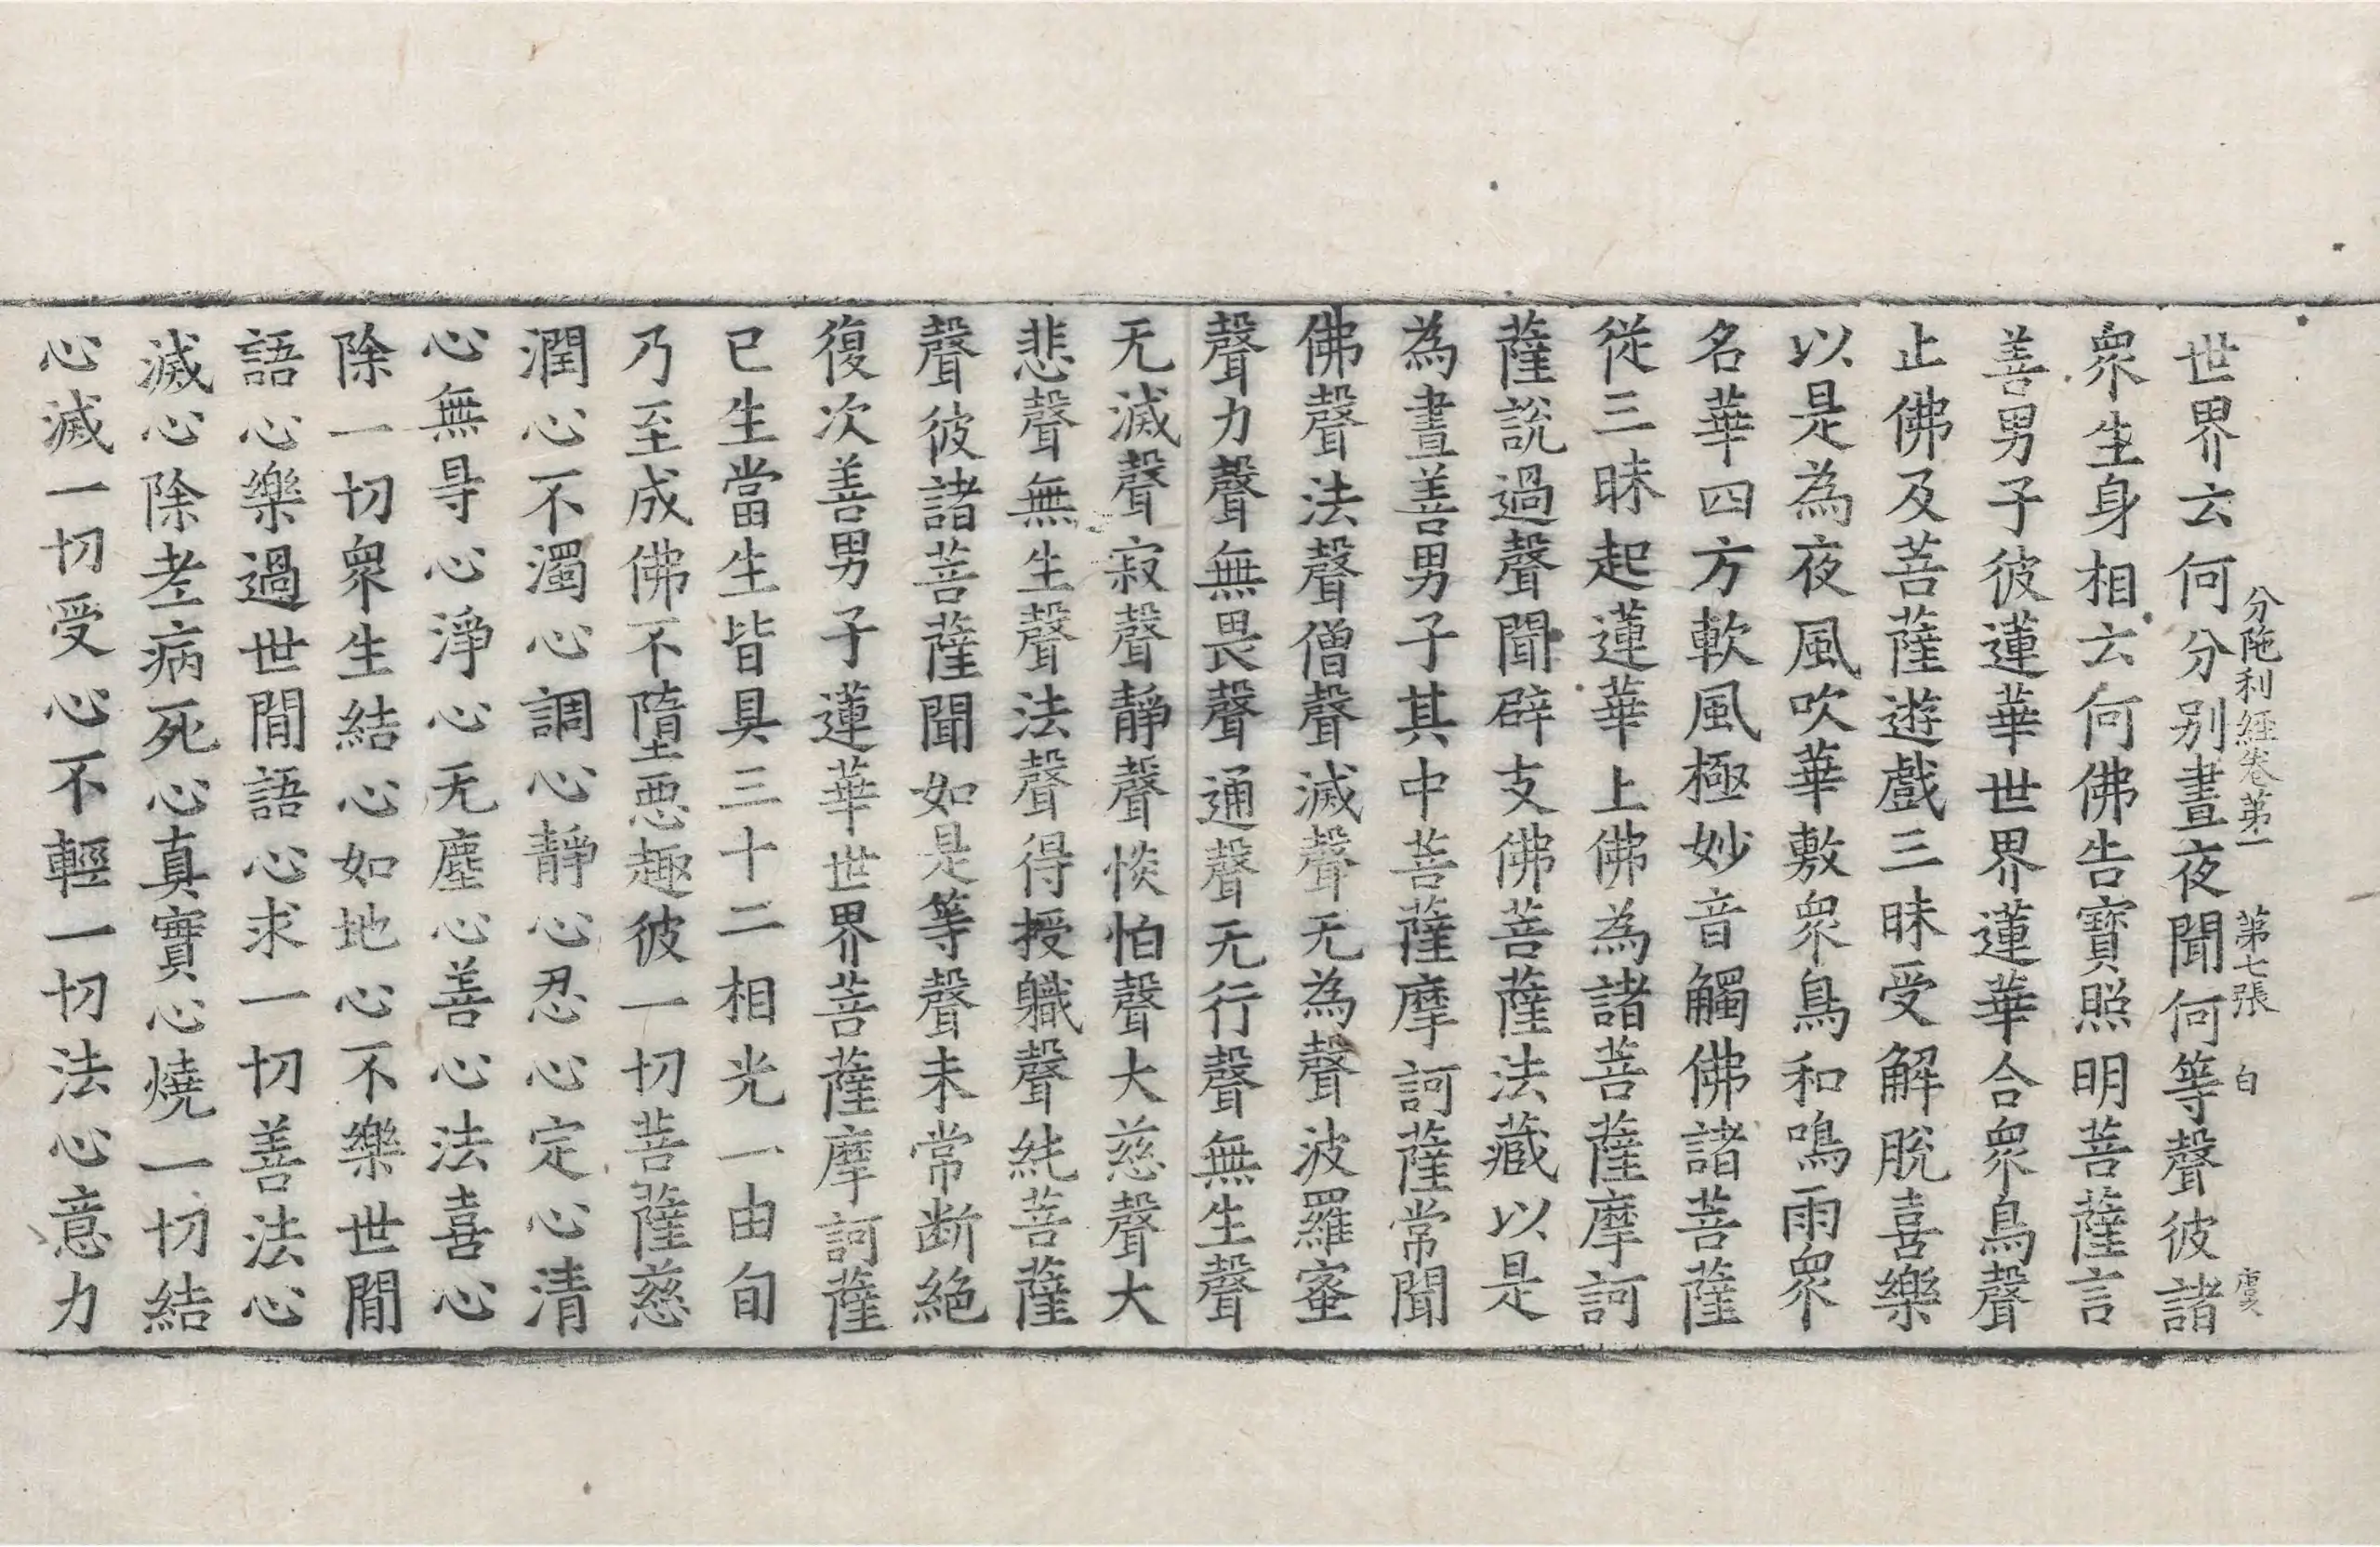 世界云何分別晝夜聞何等聲彼諸
分陁利經卷第一 第七張 白
衆生身相云何佛告寶照明菩薩言
善男子彼蓮華世界蓮華合衆鳥聲
止佛及菩薩遊戲三昧受解脫喜樂
以是為夜風吹華敷衆鳥和鳴雨衆
名華四方軟風極妙音觸佛諸菩薩
從三昧起蓮華上佛為諸菩薩摩訶
薩說過聲聞辟支佛菩薩法藏以是
為晝善男子其中菩薩摩訶薩常聞
佛聲法聲僧聲滅聲无為聲波羅蜜
聲力聲無畏聲通聲无行聲無生聲
无滅聲寂聲靜聲惔怕聲大慈聲大
悲聲無生聲法聲得授軄聲純菩薩
聲彼諸菩薩聞如是等聲未常断絕
復次善男子蓮華世界菩薩摩訶薩
已生當生皆具三十二相光一由旬
乃至成佛不墮悪趣彼一切菩薩慈
潤心不濁心調心靜心忍心定心清
心無㝵心淨心无塵心善心法喜心
除一切衆生結心如地心不樂世閒
語心樂過世閒語心求一切善法心
滅心除老病死心真實心燒一切結
心滅一切受心不輕一切法心意力